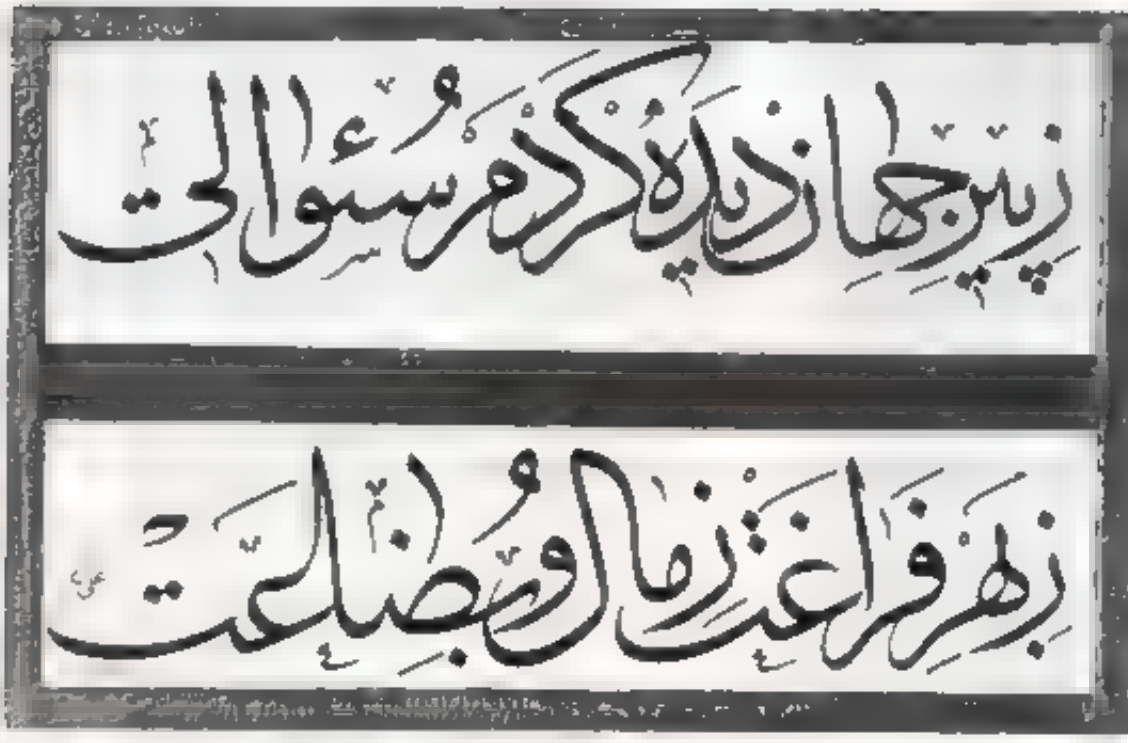 ز پیر جهاندیده کردم سئوالی
ز بهر فراغت ز مال و بضاعت